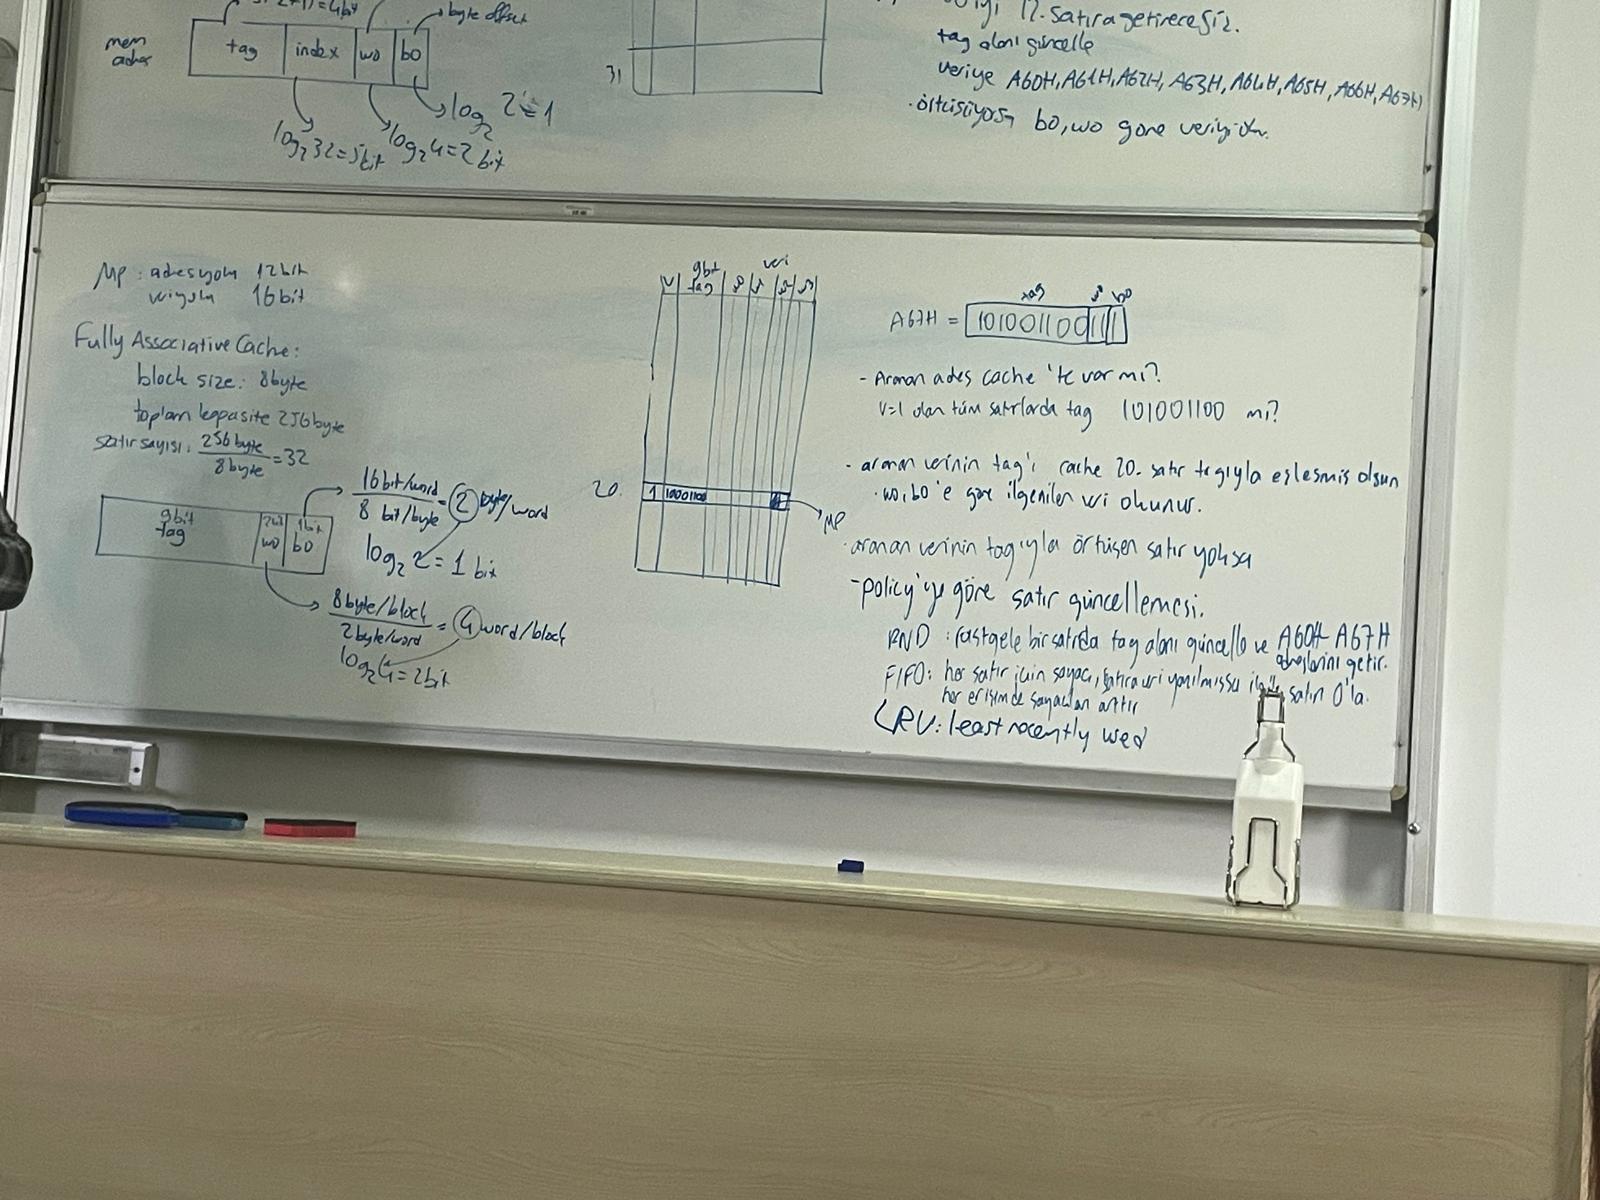 byte offset
mem
adres
tag index wo bo
log₂ 32=5bit
log₂4=2bit
log₂ 2=1
31
12. satıra getireceğiz.
tag alanı güncelle
veriye A60H, A61H, A62H, A63H, A64H, A65H, A66H, A67H
bo, wo göre veriyi
MP: adresyolu 12bit
veriyolu 16bit
Fully Associative Cache:
block size: 8byte
toplam kapasite 256byte
satır sayısı: 256byte / 8byte = 32
9bit tag 2bit wo 1bit bo
16bit/word / 8 bit/byte = 2 byte/word
log₂ 2 = 1 bit
8byte/block / 2byte/word = 4 word/block
log₂4=2bit
veri
V 9bit tag
20. 1 101001100
MP
tag wo bo
A67H = 101001100 11 1
- Aranan adres cache'te var mı?
V=1 olan tüm satırlarda tag 101001100 mı?
- aranan verinin tag'ı cache 20. satır tagıyla eşleşmiş olsun
· wo, bo'e göre ilgenilen veri okunur.
· aranan verinin tagıyla örtüşen satır yoksa
- policy'ye göre satır güncellemesi.
RND : rastgele bir satırda tag alanı güncelle ve A60H-A67H
adreslerini getir.
FIFO: her satır için sayaç, satıra veri yazılmışsa satırı 0'la.
her erişimde sayaçları arttır
LRU: least recently used